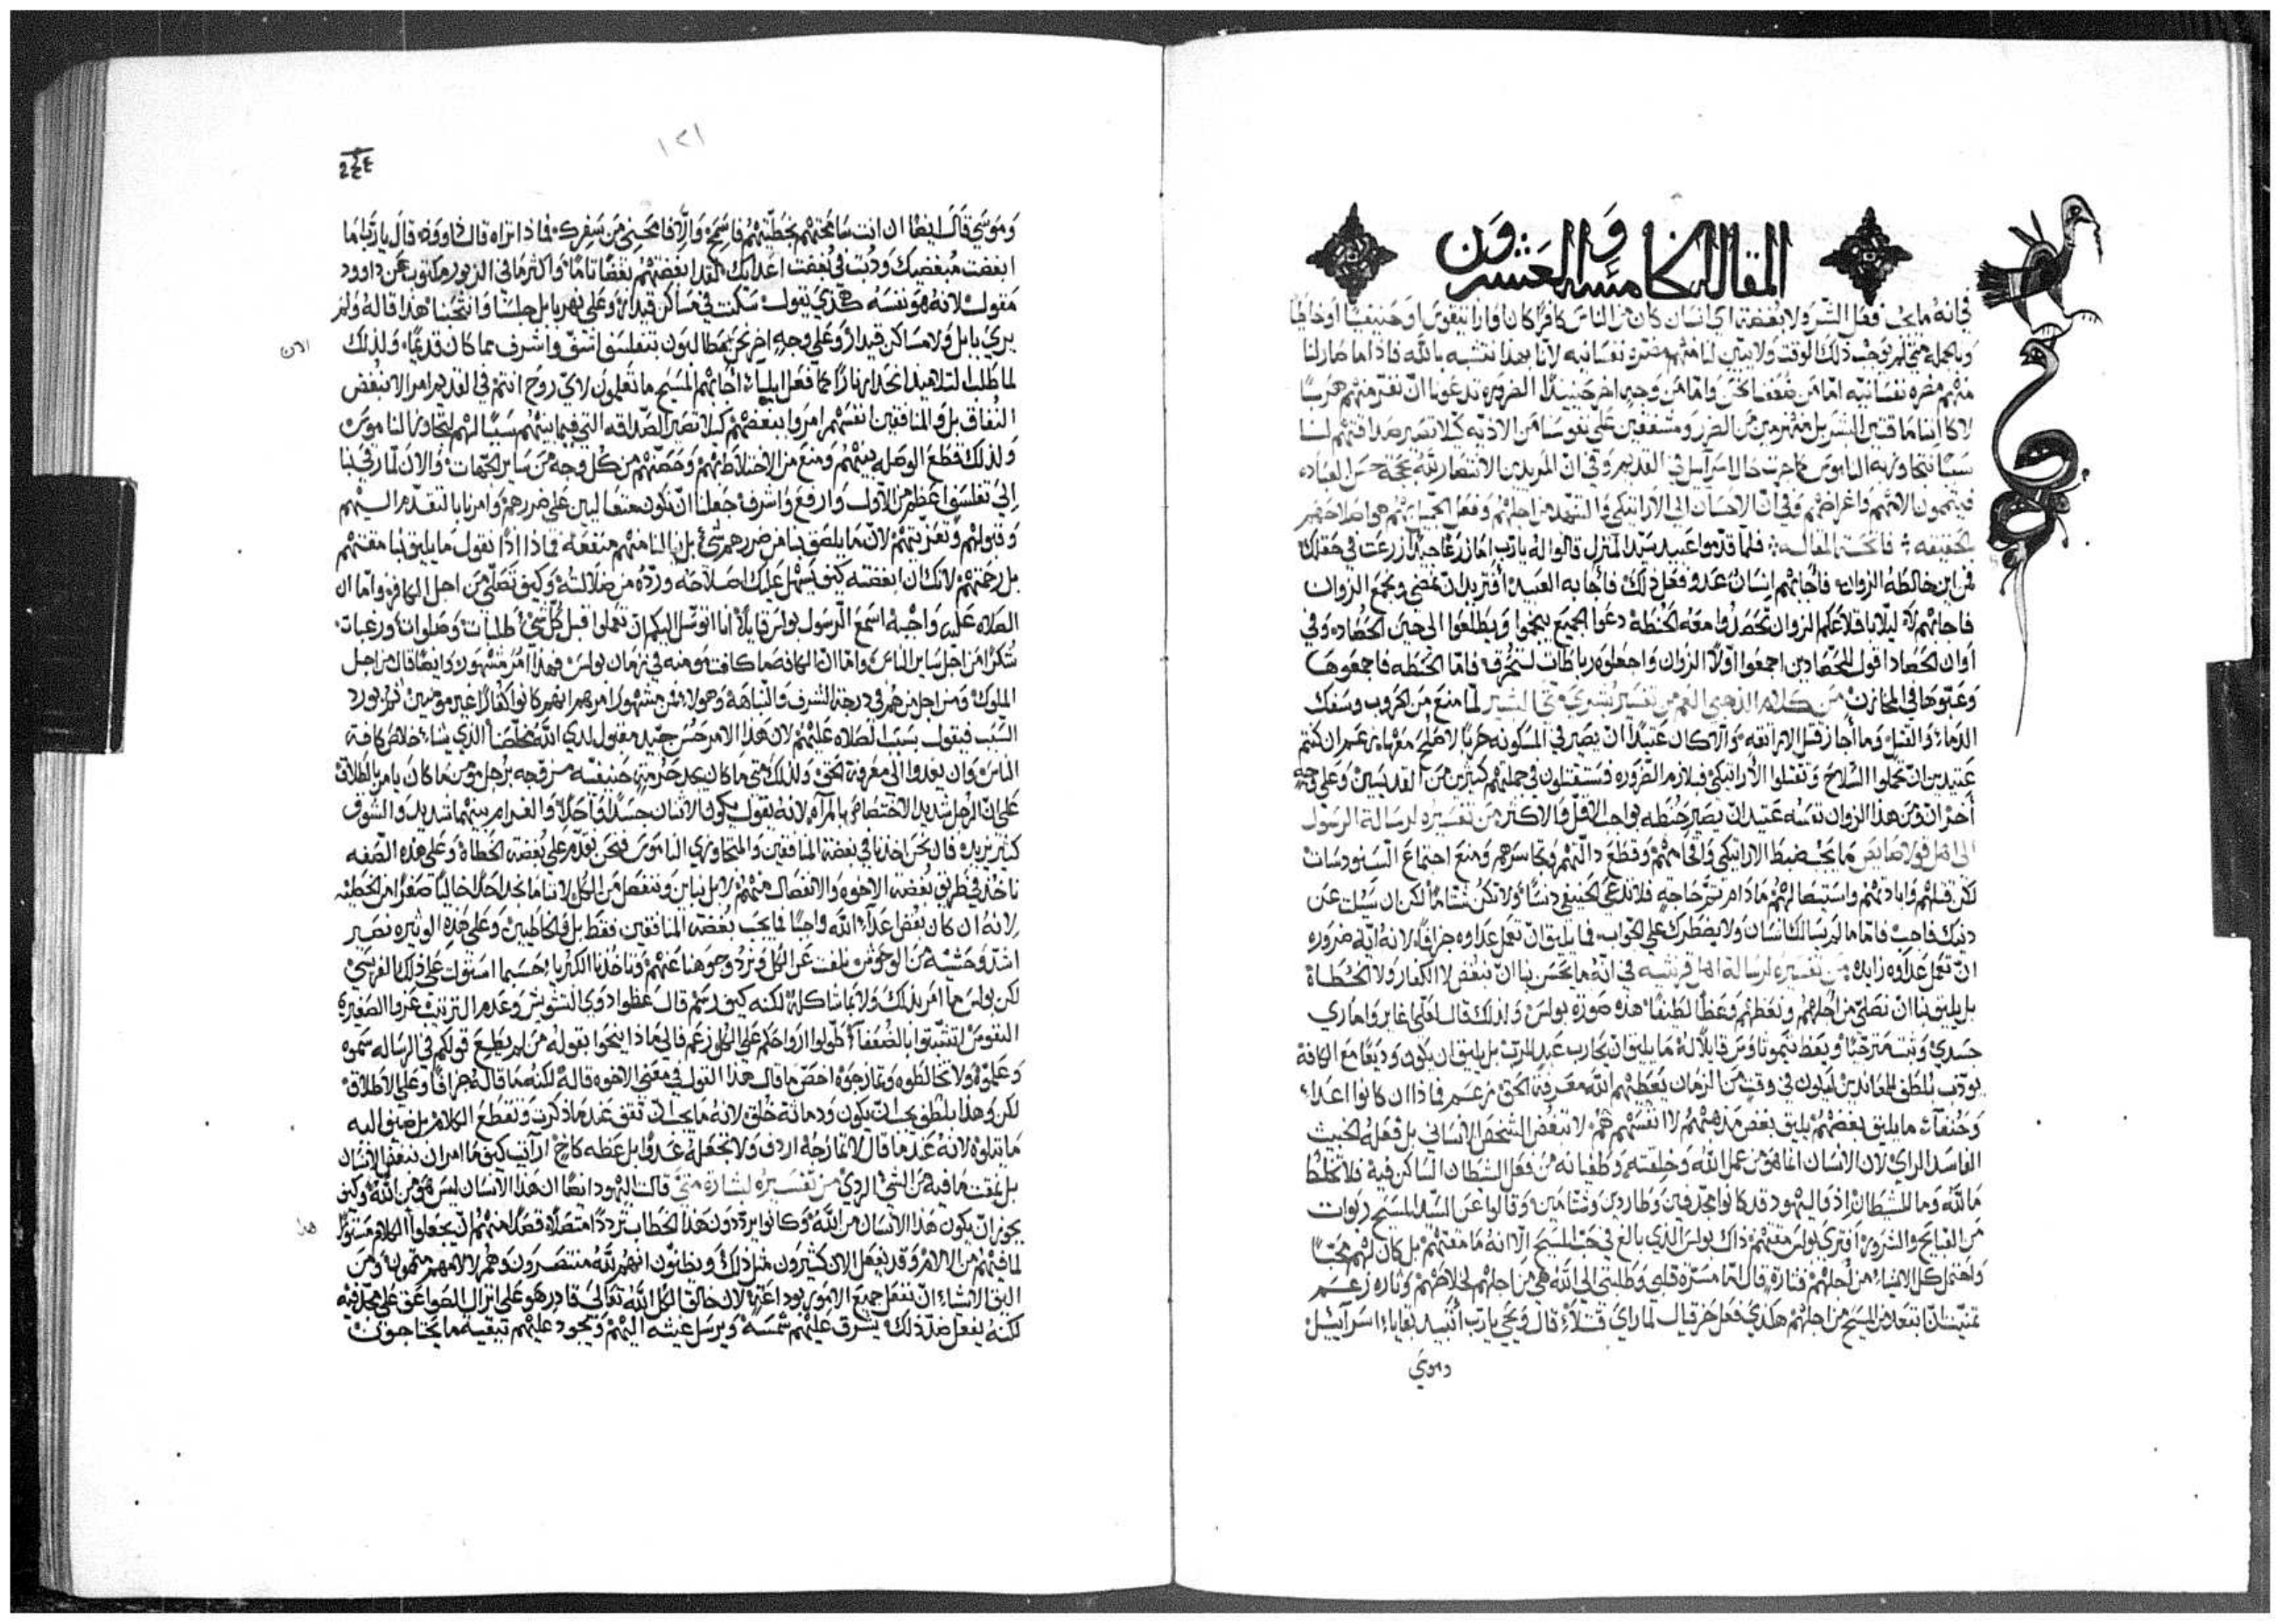 المقالة الخامسة والعشرون
في انه ما يجب فعل الشر ولا بغضة اي انسان كان من الناس كافرًا كان او اراتيقوس او حنيفيًا او خاطيًا
وبالجملة متى لم يوجب ذلك الوقت ولا يتبين لنا منهم مضرة نفسانية لاننا بهذا نتشبه بالله فاذا ما صار لنا
منهم مضرة نفسانية اما من ضعفنا نحن واما من وجه اخر حينيذ الضرورة تدعونا ان نفر منهم هربًا
لا كاننا ماقتين البشر بل منهزمين من الضرر ومشفقين على نفوسنا من الاذية كيلا تصير صداقتهم لنا
سببًا نتجاوز به الناموس كما جرت حال اسراييل في القديم وفي ان المريدين الانتصار لله بحجة حسن العبادة
فيتممون الامهم واغراضهم وفي ان الاحسان الى الاراتيكي والتنهد من اجلهم وفعل الجميل بهم هي اصلاحهم
بالحقيقة فاتحة المقالة فلما قدموا عبيد سيد المنزل قالوا له يا رب اما زرعًا جيدًا زرعت في حقلك
فمن اين خالطه الزوان فاجابهم انسان عدو فعل ذلك فاجابه العبيد افتريد ان نمضي ونجمع الزوان
فاجابهم لا ليلا باقلاعكم الزوان تحصدوا معه الحنطة دعوا الجميع ينموا ويطلعوا الى حين الحصاد وفي
اوان الحصاد اقول للحصادين اجمعوا اولًا الزوان واجعلوه رباطات لتحرق فاما الحنطة فاجمعوها
وعبوها في المخازن من كلام الذهبي الفم من تفسير بشرى متى البشير لما منع من الحروب وسفك
الدماء والقتل وما اجاز قتل الاراتقة والا كان عتيدًا ان يصير في المسكونة حربًا لا صلح معها زعم ان كنتم
عتيدين ان تحملوا السلاح وتقتلوا الاراتيكي فيلازم الضرورة فستقتلون في جملتهم كثيرين من القديسين وعلى وجه
اخر ان من هذا الزوان نفسه عتيد ان يصير حنطة بواجب الاقل والاكثر من تفسيره لرسالة الرسول
الى اهل قولاصايس ما يجب ضبط الاراتيكي والجامهم وقطع دالتهم وتجاسرهم ومنع اجتماع السنودسات
لكن قتلهم وابادتهم واستيصالهم ما دام بشر حاجة فلا تدعي الحنيفي دنسًا ولا تكن شتامًا لكن ان سيلت عن
دينك فاجب فاما ما لم يسالك انسان ولا يضطرك على الجواب فما يليق ان تعمل عداوة جزافًا لانه اية ضرورة
ان تعمل عداوة زايدة من تفسيره لرسالة اهل قرنتية في انه ما يحسن بنا ان نبغض لا الكفار ولا الخطاة
بل يليق بنا ان نصلي من اجلهم ونعظهم وعظًا لطيفًا هذه صورة بولس ولذلك قال لعلي اغاير واماري
جسدي وثبت مترجيًا ويعظ تيموثاوس قايلًا له ما يليق ان يحارب عبد الرب بل يليق ان يكون وديعًا مع الكافة
يودب بلطف المعاندين ليلون في وقت من الزمان يعطيهم الله معرفة الحق زعم فماذا ان كانوا اعداء
وحنفاء ما يليق بغضهم يليق بغض مذهبهم لا انفسهم هم لا نبغض الشخص الانساني بل فعله الخبيث
الفاسد الراي لان الانسان انما هو من عمل الله وخلقته وطغيانه من فعل الشيطان الساكن فيه فلا تخلط
ما لله وما للشيطان اذ اليهود قد كانوا مجدفين وطاردين وشتامين وقالوا عن السيد المسيح ربوات
من القبايح والشرور افترى بولس مقتهم ذاك بولس الذي بالغ في حب المسيح الا انه ما مقتهم بل كان لهم محبًا
واحتمل كل الاشياء من اجلهم فتارة قال انما مسرة قلبي وطلبتي الى الله هي من اجلهم لخلاصهم وتارة زعم
تمنيت ان ابتعد من المسيح من اجلهم هكذى فعل حزقيال لما راى قتلاء قال ويحي يا رب اتبيد بقايا اسراييل
وموسى
١٢١
وموسى قال ايضًا ان انت سامحتهم بخطيتهم فاسمح والا فامحيني من سفرك فماذا تراه قال داوود قال يا رب اما
ابغضت مبغضيك وذبت في بغضت اعدايك لقد ابغضتهم بغضًا تامًا واكثر ما في الزبور مكتوب عن داوود
مقول لانه هو نفسه هكذى يقول سكنت في مساكن قيدار وعلى نهر بابل جلسنا وانتحبنا هذا قاله ولم
يرى بابل ولا مساكن قيدار وعلى وجه اخر نحن مطالبون بتفلسف اشق واشرف مما كان قديمًا ولذلك
الان
لما طلب التلاميذ انحدار نارًا كما فعل ايلياء اجابهم المسيح ما تعلمون لاي روح انتم في القديم امر الا نبغض
النفاق بل والمنافقين انفسهم امروا ببغضهم كيلا تصير الصداقة التي فيما بينهم سببًا لهم لتجاوز الناموس
ولذلك قطع الوصلة بينهم ومنع من الاختلاط بهم وحصنهم من كل وجه من ساير الجهات والان لما رقى بنا
الى تفلسف اعظم من الاول وارفع واشرف جعلنا ان نكون متعالين على ضررهم وامرنا بالتقدم اليهم
وقبولهم وتعزيتهم لان ما يلصق بنا من ضررهم شيء بل ينالنا منهم منفعة فماذا اذًا نقول ما يليق بنا مقتهم
بل رحمتهم لانك ان ابغضته كيف يسهل عليك اصلاحه ورده من ضلالته وكيف تصلي من اجل الكافر واما ان
الصلاة عليه واجبة اسمع الرسول بولس قايلًا انا اتوسل اليكم ان تعملوا قبل كل شيء طلبات وصلوات ورغبات
شكرًا من اجل ساير الناس واما ان الكافة ما كانت مومنة في زمان بولس فهذا امر مشهور وايضًا قال من اجل
الملوك ومن اجل من هم في درجة الشرف والنباهة وهولا فمن مشهور امرهم انهم كانوا كفارًا غير مومنين ثم يورد
السبب فيقول بسبب الصلاة عليهم لان هذا الامر حسن جيد مقبول لدى الله مخلصنا الذي يشاء خلاص كافة
الناس وان يغدوا الى معرفة الحق ولذلك متى ما كان يجد حرمة حنيفية مزوجة برجل مومن ما كان يامر بالطلاق
على ان الرجل شديد الاختصاص بالمراة لانه يقول يكون الاثنان جسدًا واحدًا والغرام بينهما شديد والشوق
كثير بزيادة فان نحن اخذنا في بغضة المنافقين والمتجاوزي الناموس فنحن نتقدم على بغضة الخطاة وعلى هذه الصفة
ناخذ في طريق بغضة الاخوة والانفصال منهم لا بل نباين وننفصل من الكل لاننا ما نجد احدًا خاليًا صفرًا من الخطية
لانه ان كان بغض اعداء الله واجبًا فما يجب بغضة المنافقين فقط بل والخاطيين وعلى هذه الوتيرة نصير
اشد وحشية من الوحوش نلفت عن الكل ونرد وجوهنا عنهم وتاخذنا الكبرياء حسبما استولت على ذلك الفريسي
لكن بولس ما امر بذلك ولا بما شاكله لكنه كيف رسم قال عظوا ذوى التشويش وعدم الترتيب عزوا الصغيري
النفوس تشبثوا بالضعفاء طولوا ارواحكم على الكل زعم فالى ماذا ينحوا بقوله من لم يطيع قولكم في الرسالة سموه
وعلموه ولا تخالطوه وتمازجوه اخص ما قال هذا القول في معنى الاخوة قاله لكنه ما قاله جزافًا وعلى الاطلاق
لكن وهذا بلطف يجب ان يكون ودماثة خلق لانه ما يجب ان تقف عند ما ذكرت وتقطع الكلام بل ضيف اليه
ما تتلوه لانه عند ما قال لا تمازجه اردف ولا تجعله عدوًا بل عظه كاخ ارايت كيف ما امر ان نبغض الانسان
بل نمقت ما فيه من الشيء الردي من تفسيره لبشارة متى قالت اليهود ايضًا ان هذا الانسان ليس هو من الله وكيف
يجوز ان يكون هذا الانسان من الله وكانوا يرددون هذا الخطاب ترددًا متصلًا قصدًا منهم ان يجعلوا الكلام مستورًا
هذا
لما فيهم من الالام وقد يفعل الان كثيرون مثل ذلك ويظنون انهم لله منتصرون وهم لالامهم متممون ومن
اليق الاشياء ان نفعل جميع الامور بوداعة لان خالق الكل الله تعالى قادر هو على انزال الصواعق على مجدفيه
لكنه يفعل ضد ذلك يشرق عليهم شمسه ويرسل غيثه اليهم ويجود عليهم ببقية ما يحتاجون